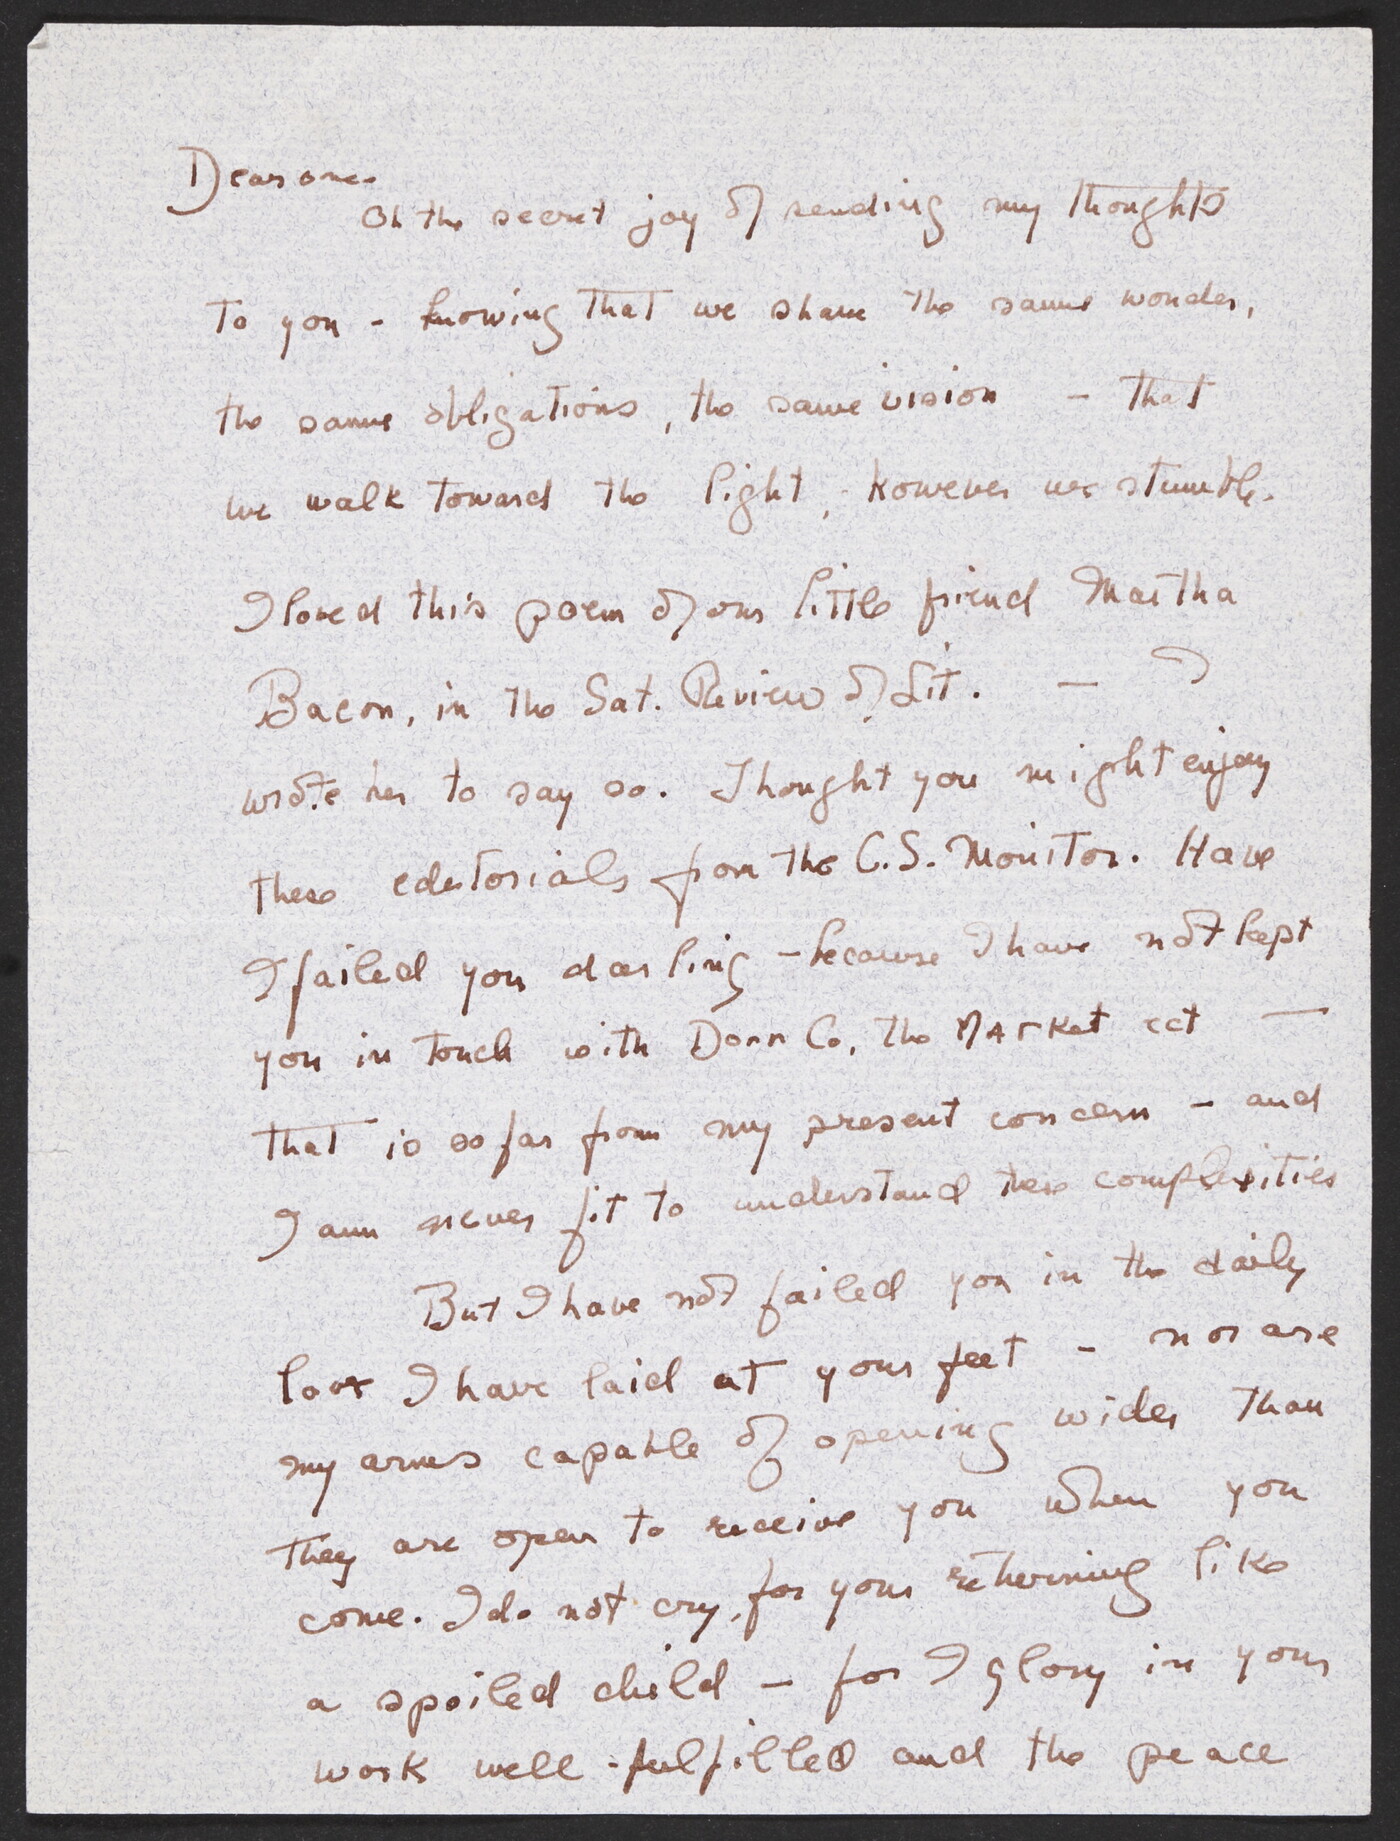 Dear one -
Oh the secret joy of sending my thoughts
to you - knowing that we share the same wonder,
the same obligations, the same vision - that
we walk toward the light, however we stumble.
I loved this poem of our little friend Martha
Bacon, in the Sat. Review of Lit. - I
wrote her to say so. Thought you might enjoy
these editorials from the C.S. Monitor. Have
I failed you darling - because I have not kept
you in touch with Donn Co, the MArKet ect -
that is so far from my present concern - and
I am never fit to understand these complexities
But I have not failed you in the daily
love I have laid at your feet - nor are
my arms capable of opening wider than
they are open to receive you when you
come. I do not cry, for your returning like
a spoiled child - for I glory in your
work well - fulfilled and the peace